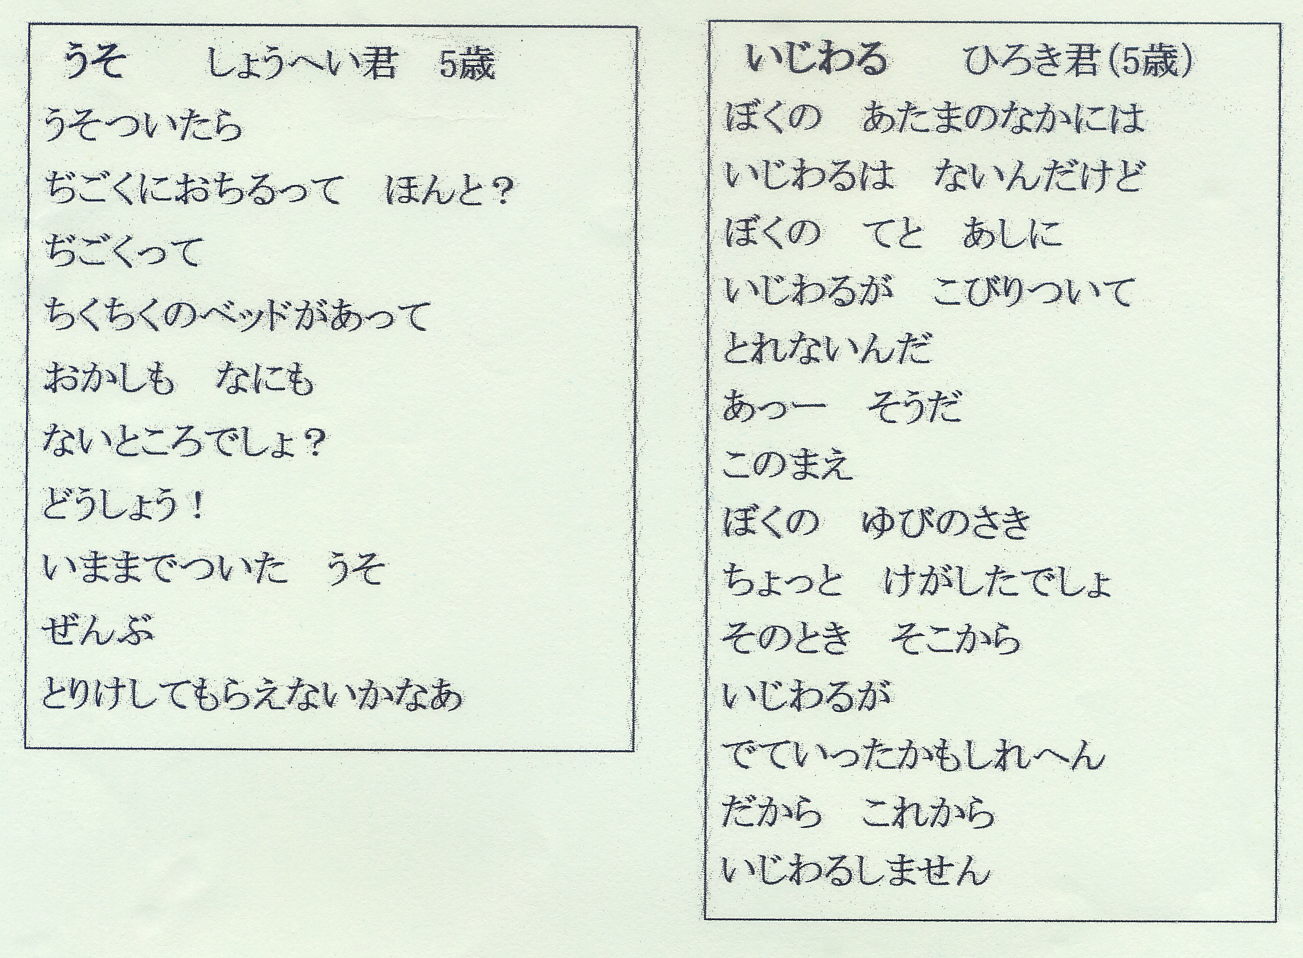 うそ　　しょうへい君　5歳
うそついたら
ぢごくにおちるって　ほんと？
ぢごくって
ちくちくのベッドがあって
おかしも　なにも
ないところでしょ？
どうしょう！
いままでついた　うそ
ぜんぶ
とりけしてもらえないかなあ
いじわる　　ひろき君（5歳）
ぼくの　あたまのなかには
いじわるは　ないんだけど
ぼくの　てと　あしに
いじわるが　こびりついて
とれないんだ
あっー　そうだ
このまえ
ぼくの　ゆびのさき
ちょっと　けがしたでしょ
そのとき　そこから
いじわるが
でていったかもしれへん
だから　これから
いじわるしません